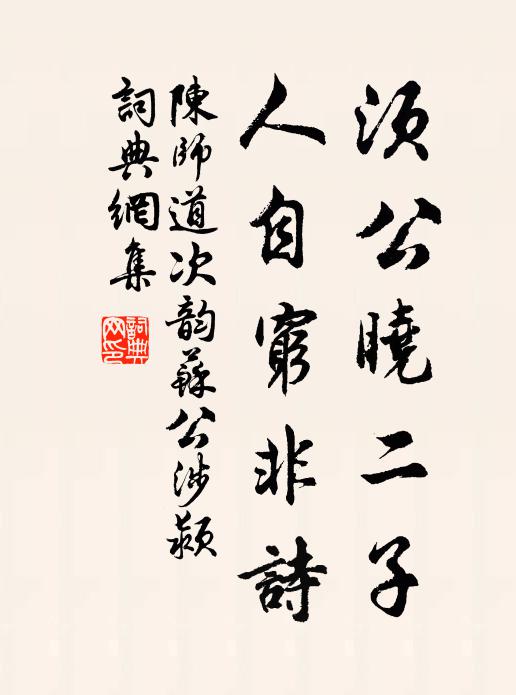 須公曉二子
人自窮非詩
陳師道次韵蘇公涉潁
詞典網集
詞典網印